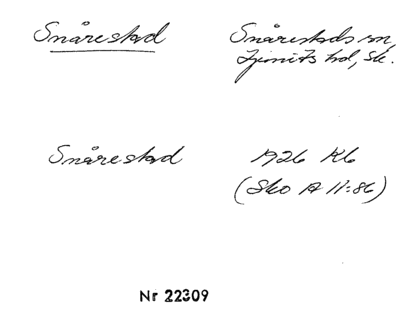 Snårestad
Snårestads sn,
Ljunits hd, Sk.
Snårestad
1926 Kb
(Sko A II:86)
Nr 22309